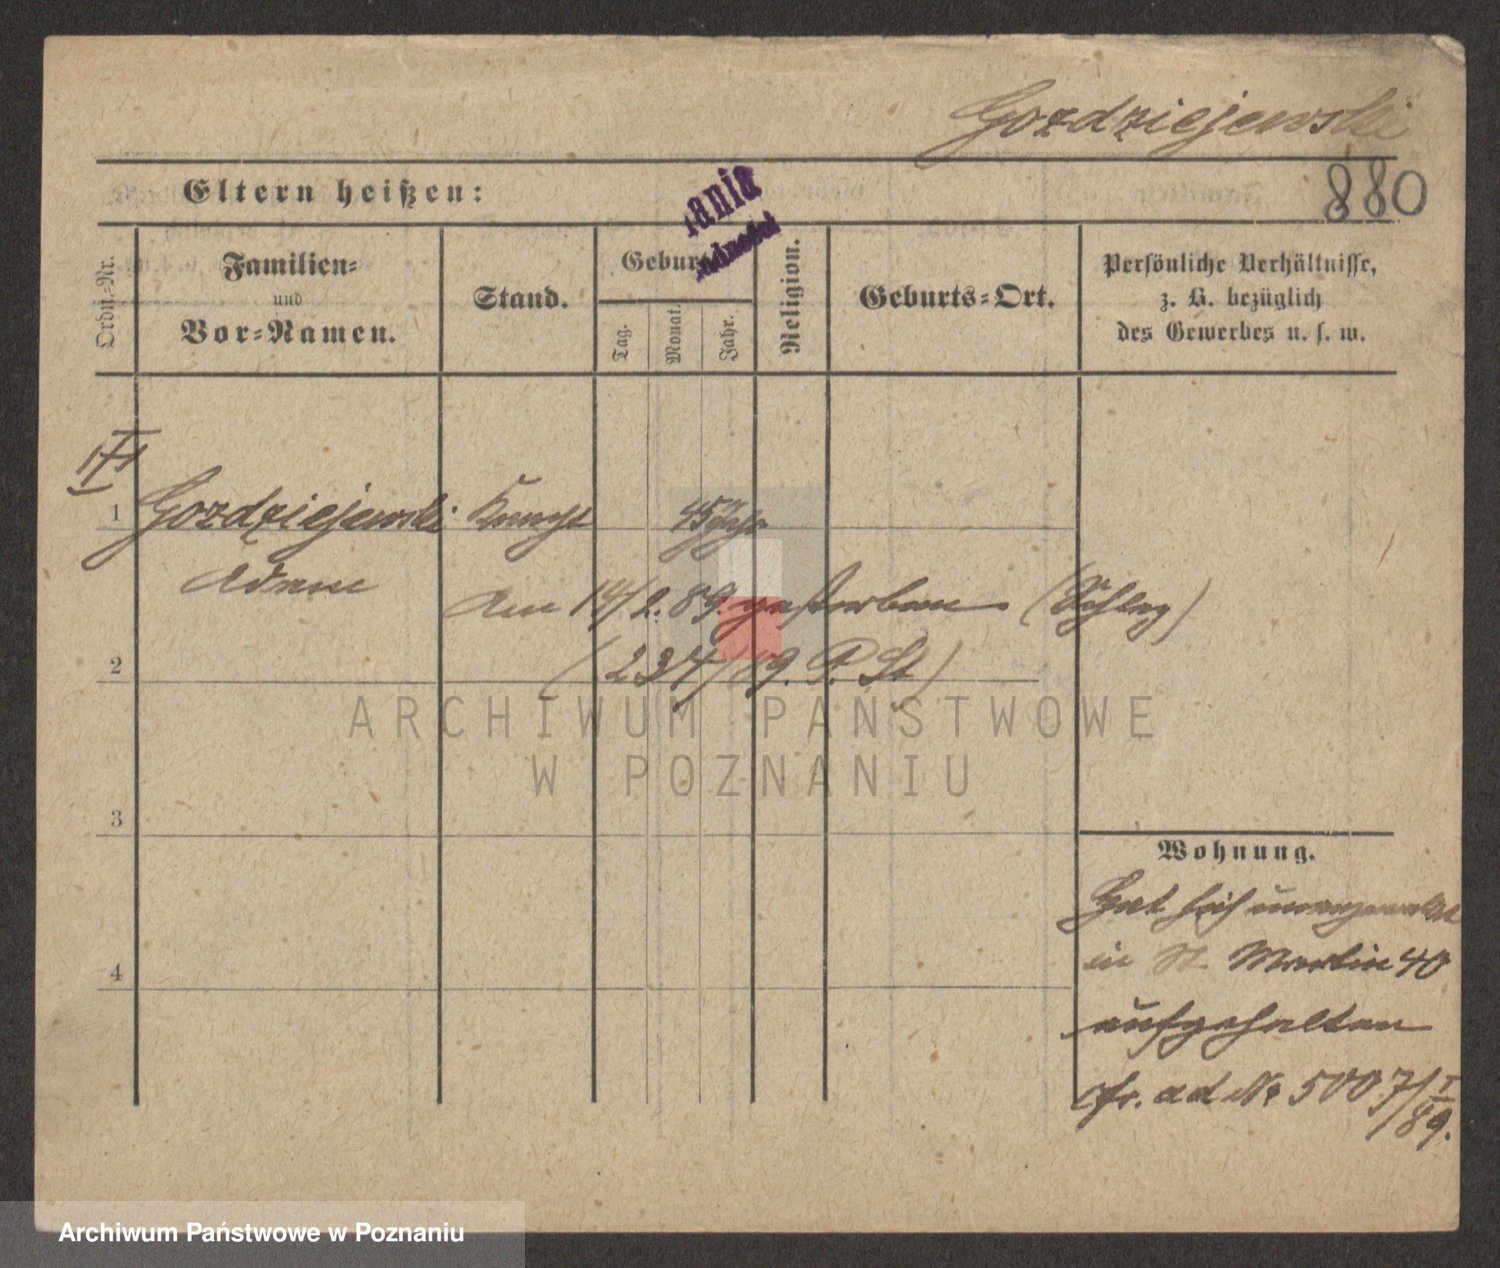 Gozdziejewski
880
Eltern heißen:
Ordn.-Nr.
Familien-
und
Vor-Namen.
Stand.
Geburts
Tag.
Monat.
Jahr.
Religion.
Geburts-Ort.
Persönliche Verhältnisse,
z. B. bezüglich
des Gewerbes u. s. w.
ania
1
Gozdziejewski Knecht 45 Jahr
Adam
Am 14/2. 89. gestorben (Schlag)
(234/89. P. St.)
2
3
4
Wohnung.
Hat sich unangemeldet
in St. Martin 40
aufgehalten
cfr. ad No 5007/I
89.
ARCHIWUM PAŃSTWOWE
W POZNANIU
Archiwum Państwowe w Poznaniu